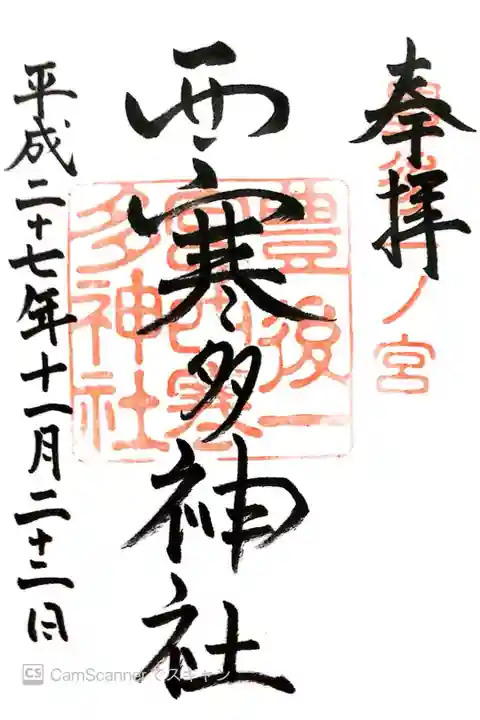 奉拝
豊後一ノ宮
西寒多神社
豊後一
宮西寒
多神社
平成二十七年十一月二十二日
CS CamScannerでスキャン